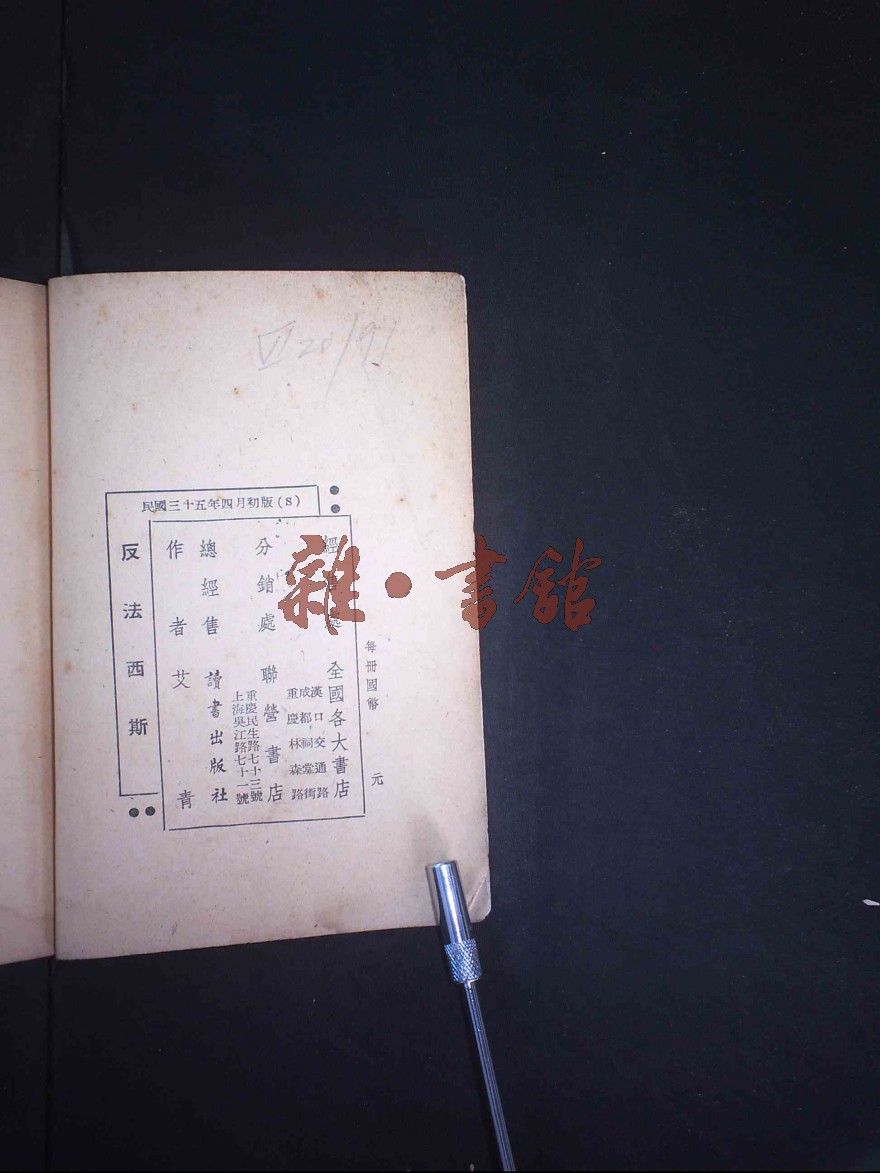 民國三十五年四月初版(S)
反法西斯
作者 艾青
總經售 讀書出版社
上海吳江路七十一號
重慶民生路七十三號
分銷處 聯營書店
重慶林森路
成都祠堂街
漢口交通路
經售處 全國各大書店
每冊國幣 元
雜·書舘